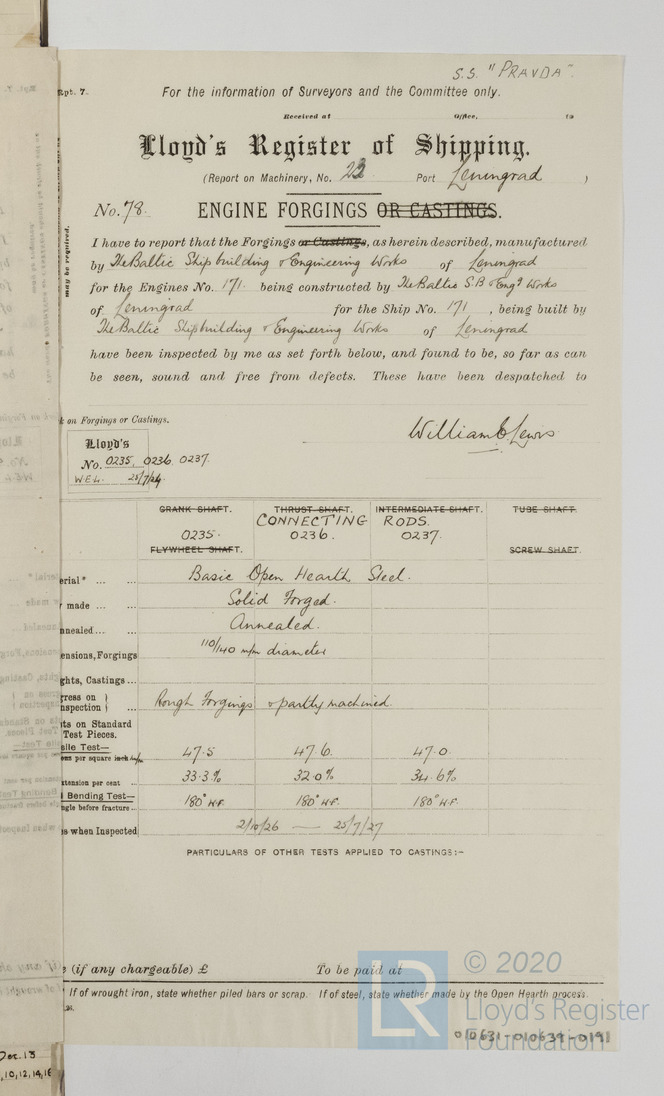 S.S. "PRAVDA".
Rpt. 7.
For the information of Surveyors and the Committee only.
Received at Office, to
Lloyd's Register of Shipping.
(Report on Machinery, No. 22 Port Leningrad )
No. 78. ENGINE FORGINGS OR CASTINGS.
may be required.
I have to report that the Forgings or Castings, as herein described, manufactured
by The Baltic Shipbuilding & Engineering Works of Leningrad
for the Engines No. 171. being constructed by The Baltic S.B & Engg Works
of Leningrad for the Ship No. 171, being built by
The Baltic Shipbuilding & Engineering Works of Leningrad
have been inspected by me as set forth below, and found to be, so far as can
be seen, sound and free from defects. These have been despatched to
k on Forgings or Castings.
William E Lewis
Lloyd's
No. 0235, 0236, 0237.
W.E.L. 25/7/27
CRANK SHAFT. THRUST SHAFT. INTERMEDIATE SHAFT. TUBE SHAFT.
CONNECTING RODS.
0235. 0236. 0237.
FLYWHEEL SHAFT. SCREW SHAFT.
erial* ... ... Basic Open Hearth Steel.
made ... ... Solid Forged.
nnealed ... ... Annealed.
ensions, Forgings 110/140 m/m diameter
ghts, Castings ...
gress on
nspection Rough Forgings & partly machined.
ts on Standard
Test Pieces.
sile Test—
ons per square inch 47.5 47.6. 47.0.
xtension per cent ... 33.3% 32.0% 34.6%
Bending Test—
ngle before fracture ... 180° N.F. 180° N.F. 180° N.F.
s when Inspected 2/10/26 — 25/7/27
PARTICULARS OF OTHER TESTS APPLIED TO CASTINGS:-
(if any chargeable) £ To be paid at
* If of wrought iron, state whether piled bars or scrap. If of steel, state whether made by the Open Hearth process.
LR
© 2020
Lloyd's Register
Foundation
010631-010639-0191
Dec. 13
,10,12,14,16